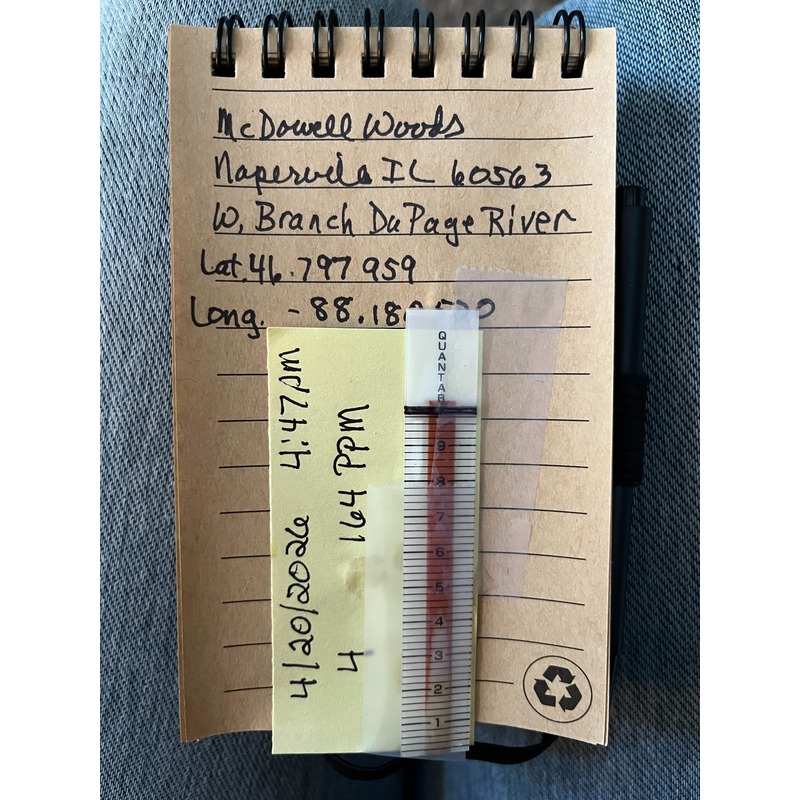 McDowell Woods
Naperville IL 60563
W. Branch DuPage River
Lat. 46.797959
Long. -88.18
4/20/2026 4:47pm
4 164 ppm
QUANTAB
9
8
7
6
5
4
3
2
1